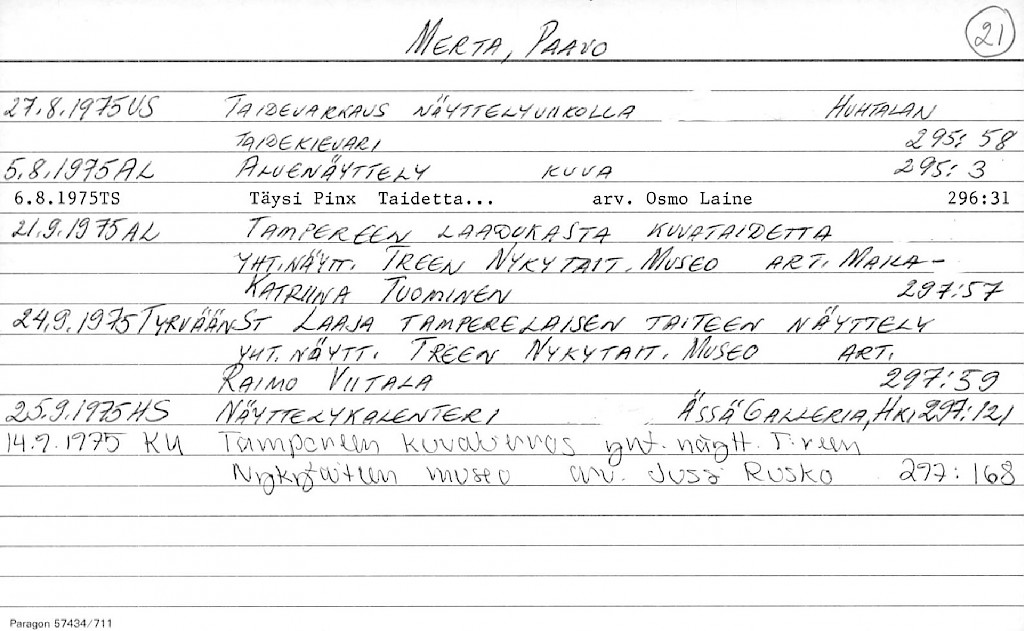 MERTA, PAAVO 21
27.8.1975 US TAIDEVARKAUS NÄYTTELYULKOLLA HUHTALAN
TAIDEKIEVARI 295:58
5.8.1975 AL ALUENÄYTTELY KUVA 295:3
6.8.1975TS Täysi Pinx Taidetta... arv. Osmo Laine 296:31
21.9.1975 AL TAMPEREEN LAADUKASTA KUVATAIDETTA
YHT.NÄYTT. TREEN NYKYTAIT. MUSEO ART. MAILA-
KATRIINA TUOMINEN 297:57
24.9.1975 TYRVÄÄNST LAAJA TAMPERELAISEN TAITEEN NÄYTTELY
YHT. NÄYTT. TREEN NYKYTAIT. MUSEO ART.
RAIMO VIITALA 297:59
25.9.1975 HS NÄYTTELYKALENTERI ÄSSÄ GALLERIA, HKI 297:121
14.9.1975 KU Tampereen yht. näytt. T:reen
Nykytaiteen museo arv. Jussi Rusko 297:168
Paragon 57434/711